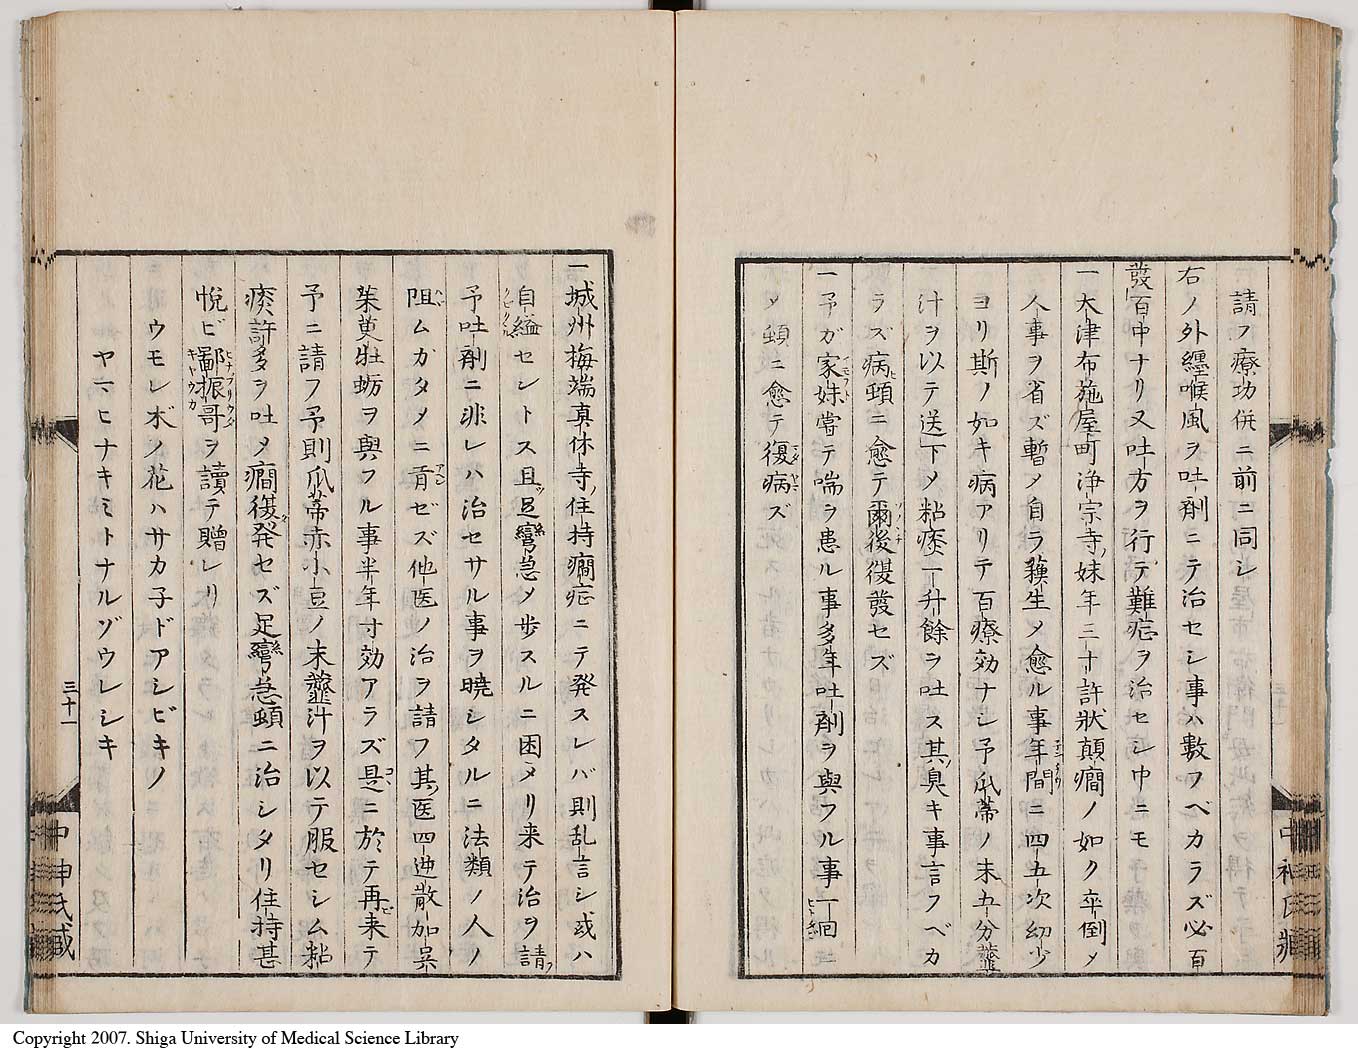 請フ療功併ニ前ニ同シ
右ノ外纏喉風ヲ吐剤ニテ治セシ事ハ數フベカラズ必百
發百中ナリ又吐方ヲ行テ難症ヲ治セシ中ニモ
一大津布施屋町浄宗寺ノ妹年三十許状顛癇ノ如ク卒倒メ
人事ヲ省ズ暫メ自ラ蘓生メ愈ル事年間ニ四五次幼少
ヨリ斯ノ如キ病アリテ百療効ナシ予瓜蒂ノ末五分虀
汁ヲ以テ送下メ粘痰一升餘ヲ吐ス其臭キ事言フベカ
ラズ病頓ニ愈テ爾後復發セズ
一予ガ家妹嘗テ喘ヲ患ル事多年吐剤ヲ與フル事一回ニ
メ頓ニ愈テ復病ズ
中神氏藏
一城州梅端真休寺ノ住持癇症ニテ発スレバ則乱言シ或ハ
自縊セントス且足攣急メ歩スルニ困メリ来テ治ヲ請フ
予吐剤ニ非レハ治セサル事ヲ暁シタルニ法類ノ人ノ
阻ムガタメニ肯ゼズ他医ノ治ヲ請フ其医四逆散加呉
茱萸牡蛎ヲ與フル事半年寸効アラズ是ニ於テ再来テ
予ニ請フ予則瓜蒂赤小豆ノ末虀汁ヲ以テ服セシム粘
痰許多ヲ吐メ癇復発セズ足攣急頓ニ治シタリ住持甚
悦ビ鄙振哥ヲ讀テ贈レリ
ウモレボノ花ハサカ子ドアシビキノ
ヤマヒナキミトナルゾウレシキ
三十一
中神氏藏
Copyright 2007. Shiga University of Medical Science Library